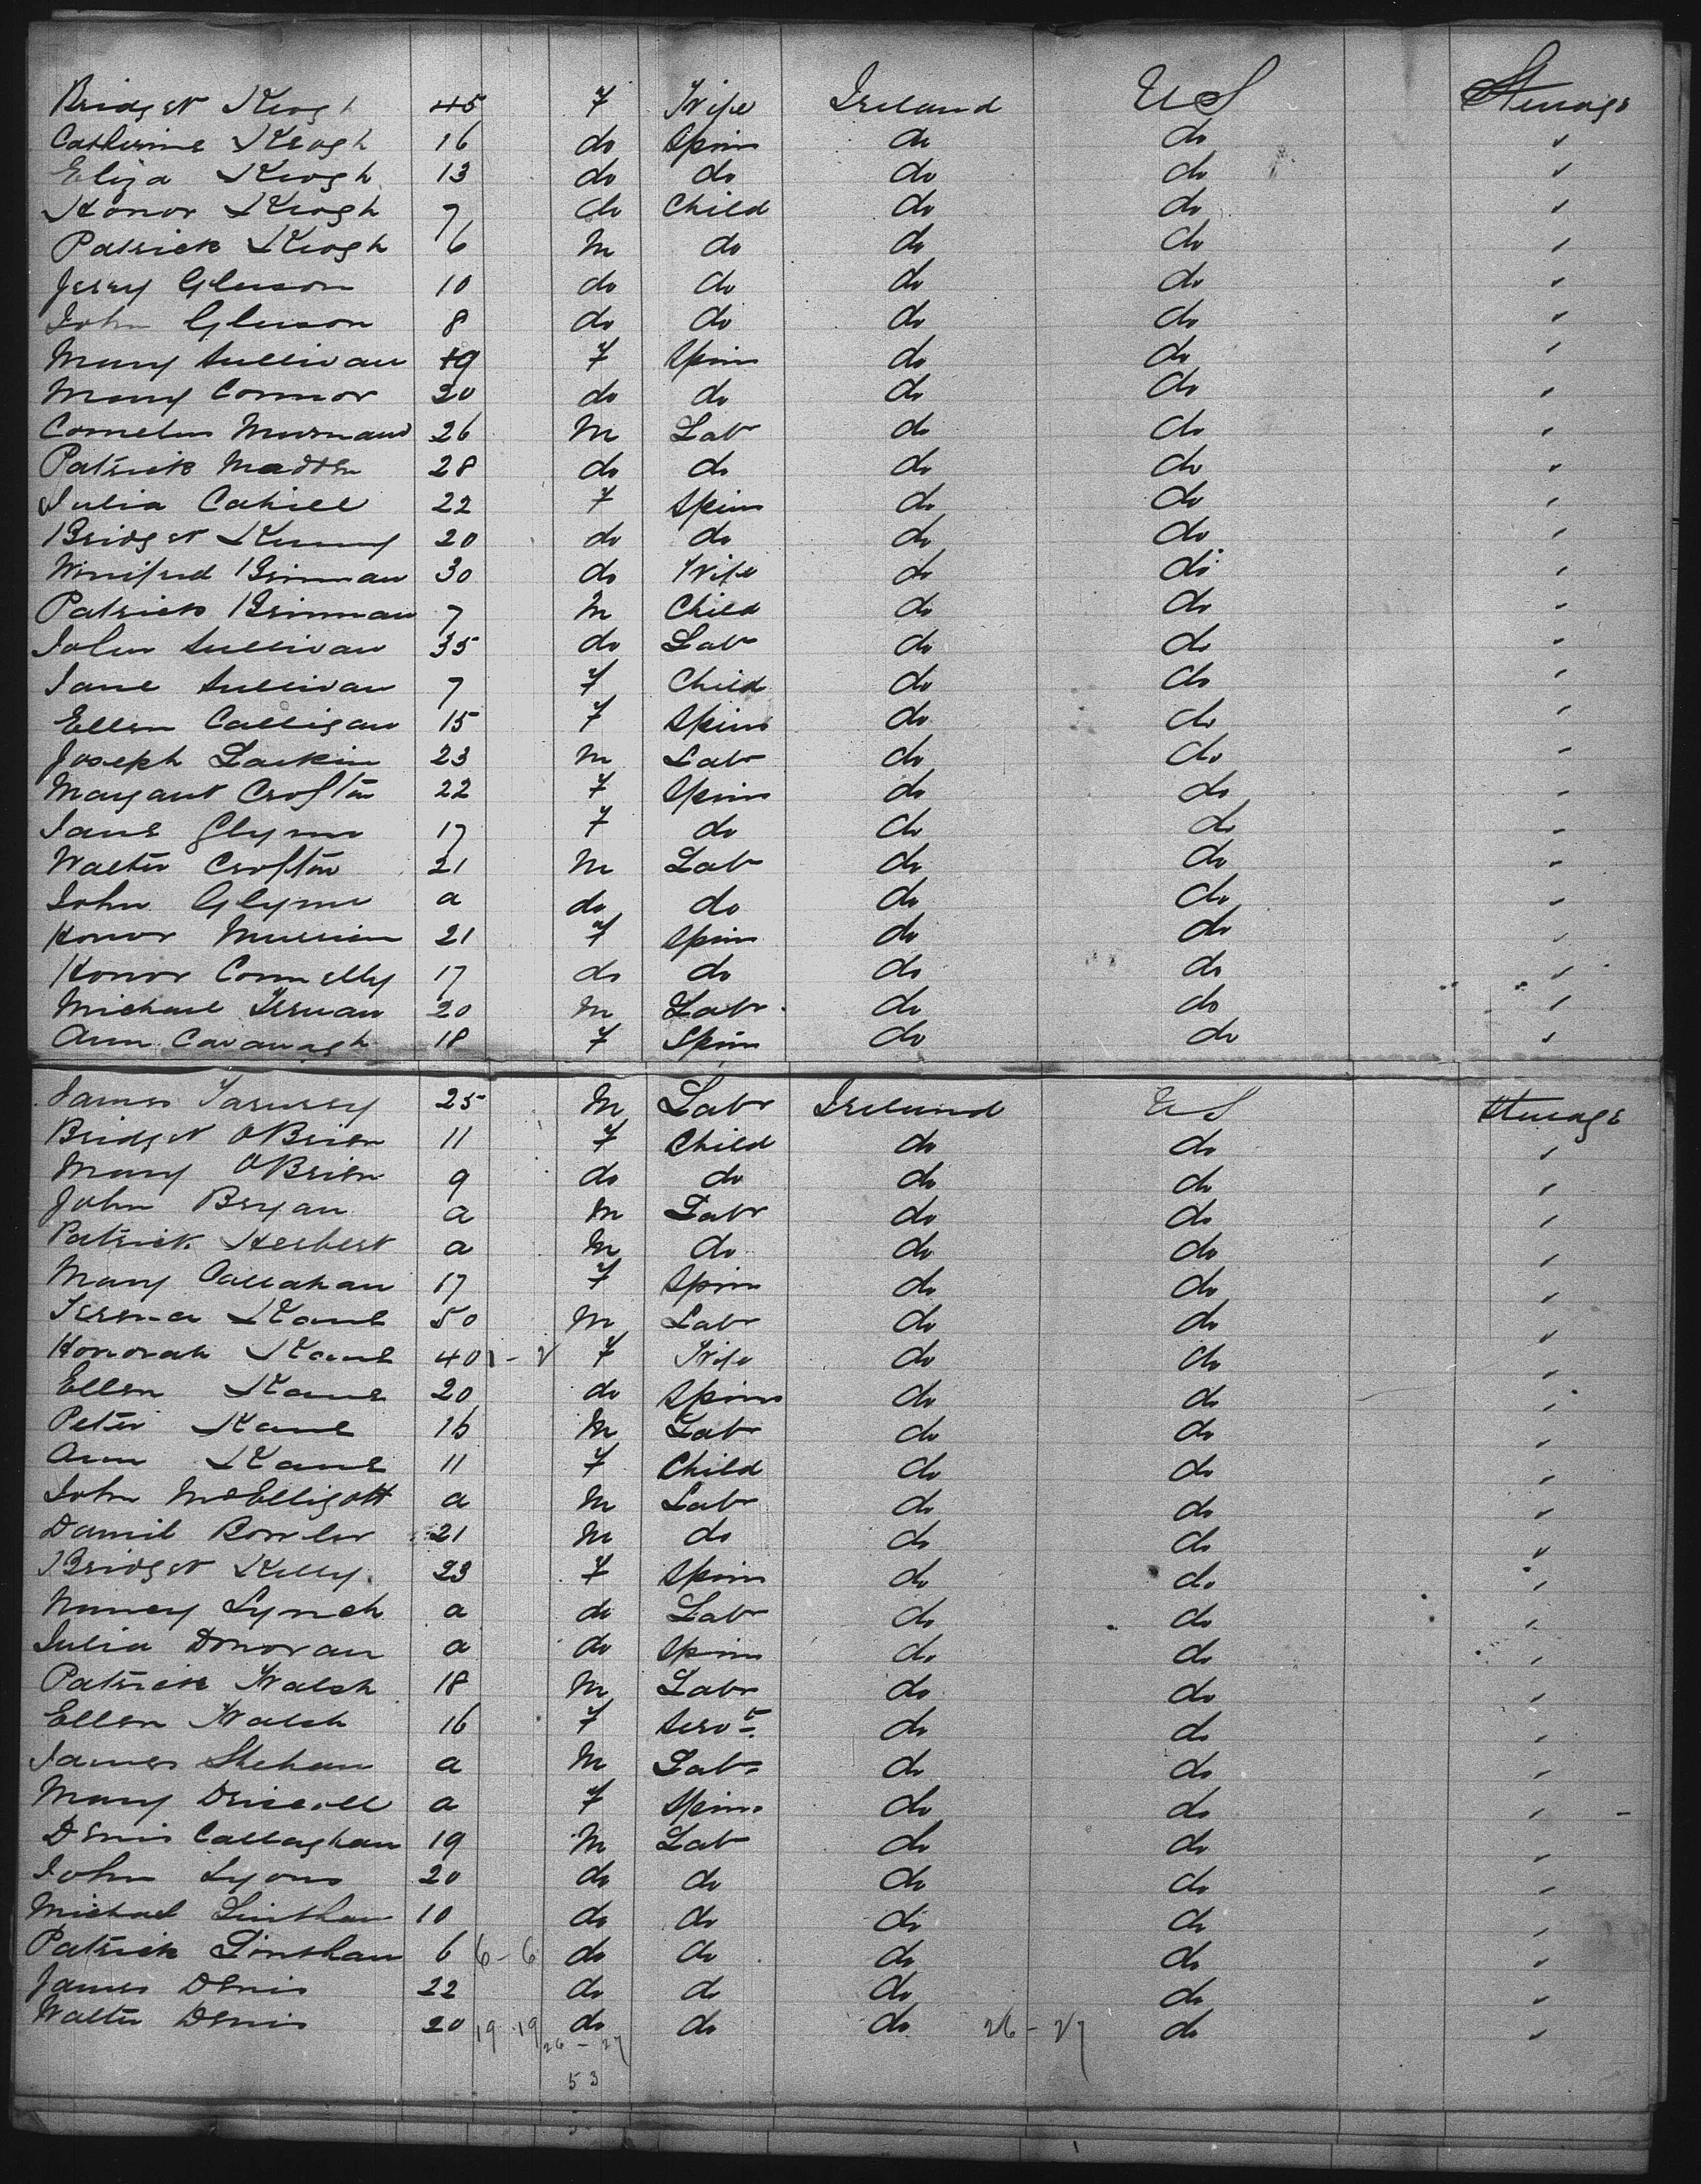 Bridget Keogh 45 F Wife Ireland US Steerage
Catherine Keogh 16 do Spins do do "
Eliza Keogh 13 do do do do "
Honor Keogh 7 do Child do do "
Patrick Keogh 6 M do do do "
Jerry Gleeson 10 do do do do "
John Gleeson 8 do do do do "
Mary Sullivan 19 F Spins do do "
Mary Connor 20 do do do do "
Cornelius 26 M Labr do do "
Patrick Madden 28 do do do do "
Julia Cahill 22 F Spins do do "
Bridget Kenny 20 do do do do "
Winifred Brinnan 30 do Wife do do "
Patrick Brinnan 7 M Child do do "
John Sullivan 35 do Labr do do "
Jane Sullivan 7 F Child do do "
Ellen Calligan 15 F Spins do do "
Joseph Larkin 23 M Labr do do "
Margaret Crofton 22 F Spins do do "
Jane Glynn 17 F do do do "
Walter Crofton 21 M Labr do do "
John Glynn a do do do do "
Honor 21 F Spins do do "
Honor Connelly 17 do do do do "
Michael 20 M Labr do do "
Ann Cavanagh 18 F Spins do do "
James 25 M Labr Ireland US Steerage
Bridget OBrien 11 F Child do do "
Mary OBrien 9 do do do do "
John Bryan a M Labr do do "
Patrick Herbert a M do do do "
Mary Callahan 17 F Spins do do "
Kane 50 M Labr do do "
Honorah Kane 40 1 - 2 F Wife do do "
Ellen Kane 20 do Spins do do "
Peter Kane 16 M Labr do do "
Ann Kane 11 F Child do do "
John McElligott a M Labr do do "
Daniel Bowler 21 M do do do "
Bridget Kelly 23 F Spins do do "
Nancy Lynch a do Labr do do "
Julia Donovan a do Spins do do "
Patrick Walsh 18 M Labr do do "
Ellen Walsh 16 F Servt do do "
James Shehan a M Labr do do "
Mary Driscoll a F Spins do do "
Denis Callaghan 19 M Labr do do "
John Lyons 20 do do do do "
Michael Linehan 10 do do do do "
Patrick Linehan 6 6 - 6 do do do do "
James Denis 22 do do do do "
Walter Denis 20 19 19 do do do 26 - 27 do "
26 - 27
53